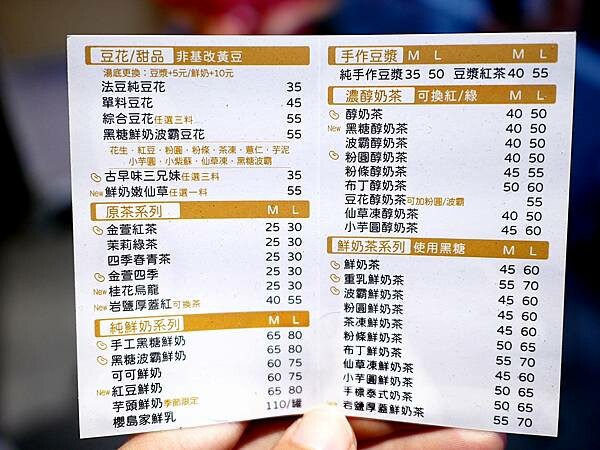 豆花/甜品 非基改黃豆
湯底更換：豆漿+5元/鮮奶+10元
法豆純豆花 35
單料豆花 45
綜合豆花任選三料 55
黑糖鮮奶波霸豆花 55
花生．紅豆．粉圓．粉條．茶凍．薏仁．芋泥
小芋圓．小紫蘇．仙草凍．黑糖波霸
古早味三兄妹任選三料 35
New 鮮奶嫩仙草任選一料 55
原茶系列 M L
金萱紅茶 25 30
茉莉綠茶 25 30
四季春青茶 25 30
金萱四季 25 30
New 桂花烏龍 25 30
New 岩鹽厚蓋紅可換茶 40 55
純鮮奶系列 M L
手工黑糖鮮奶 65 80
黑糖波霸鮮奶 65 80
可可鮮奶 60 75
New 紅豆鮮奶 60 75
芋頭鮮奶季節限定 65 80
櫻島家鮮乳 110/罐
手作豆漿 M L M L
純手作豆漿 35 50 豆漿紅茶 40 55
濃醇奶茶 可換紅/綠 M L
醇奶茶 40 50
New 黑糖醇奶茶 40 50
波霸醇奶茶 40 50
粉圓醇奶茶 40 50
粉條醇奶茶 45 55
布丁醇奶茶 50 60
豆花醇奶茶可加粉圓/波霸 55
仙草凍醇奶茶 40 50
小芋圓醇奶茶 45 60
鮮奶茶系列 使用黑糖 M L
鮮奶茶 45 60
重乳鮮奶茶 55 70
波霸鮮奶茶 45 60
粉圓鮮奶茶 45 60
茶凍鮮奶茶 45 60
粉條鮮奶茶 45 60
布丁鮮奶茶 50 65
仙草凍鮮奶茶 55 70
小芋圓鮮奶茶 45 60
手標泰式奶茶 50 65
New 岩鹽厚蓋鮮奶茶 50 65
55 70